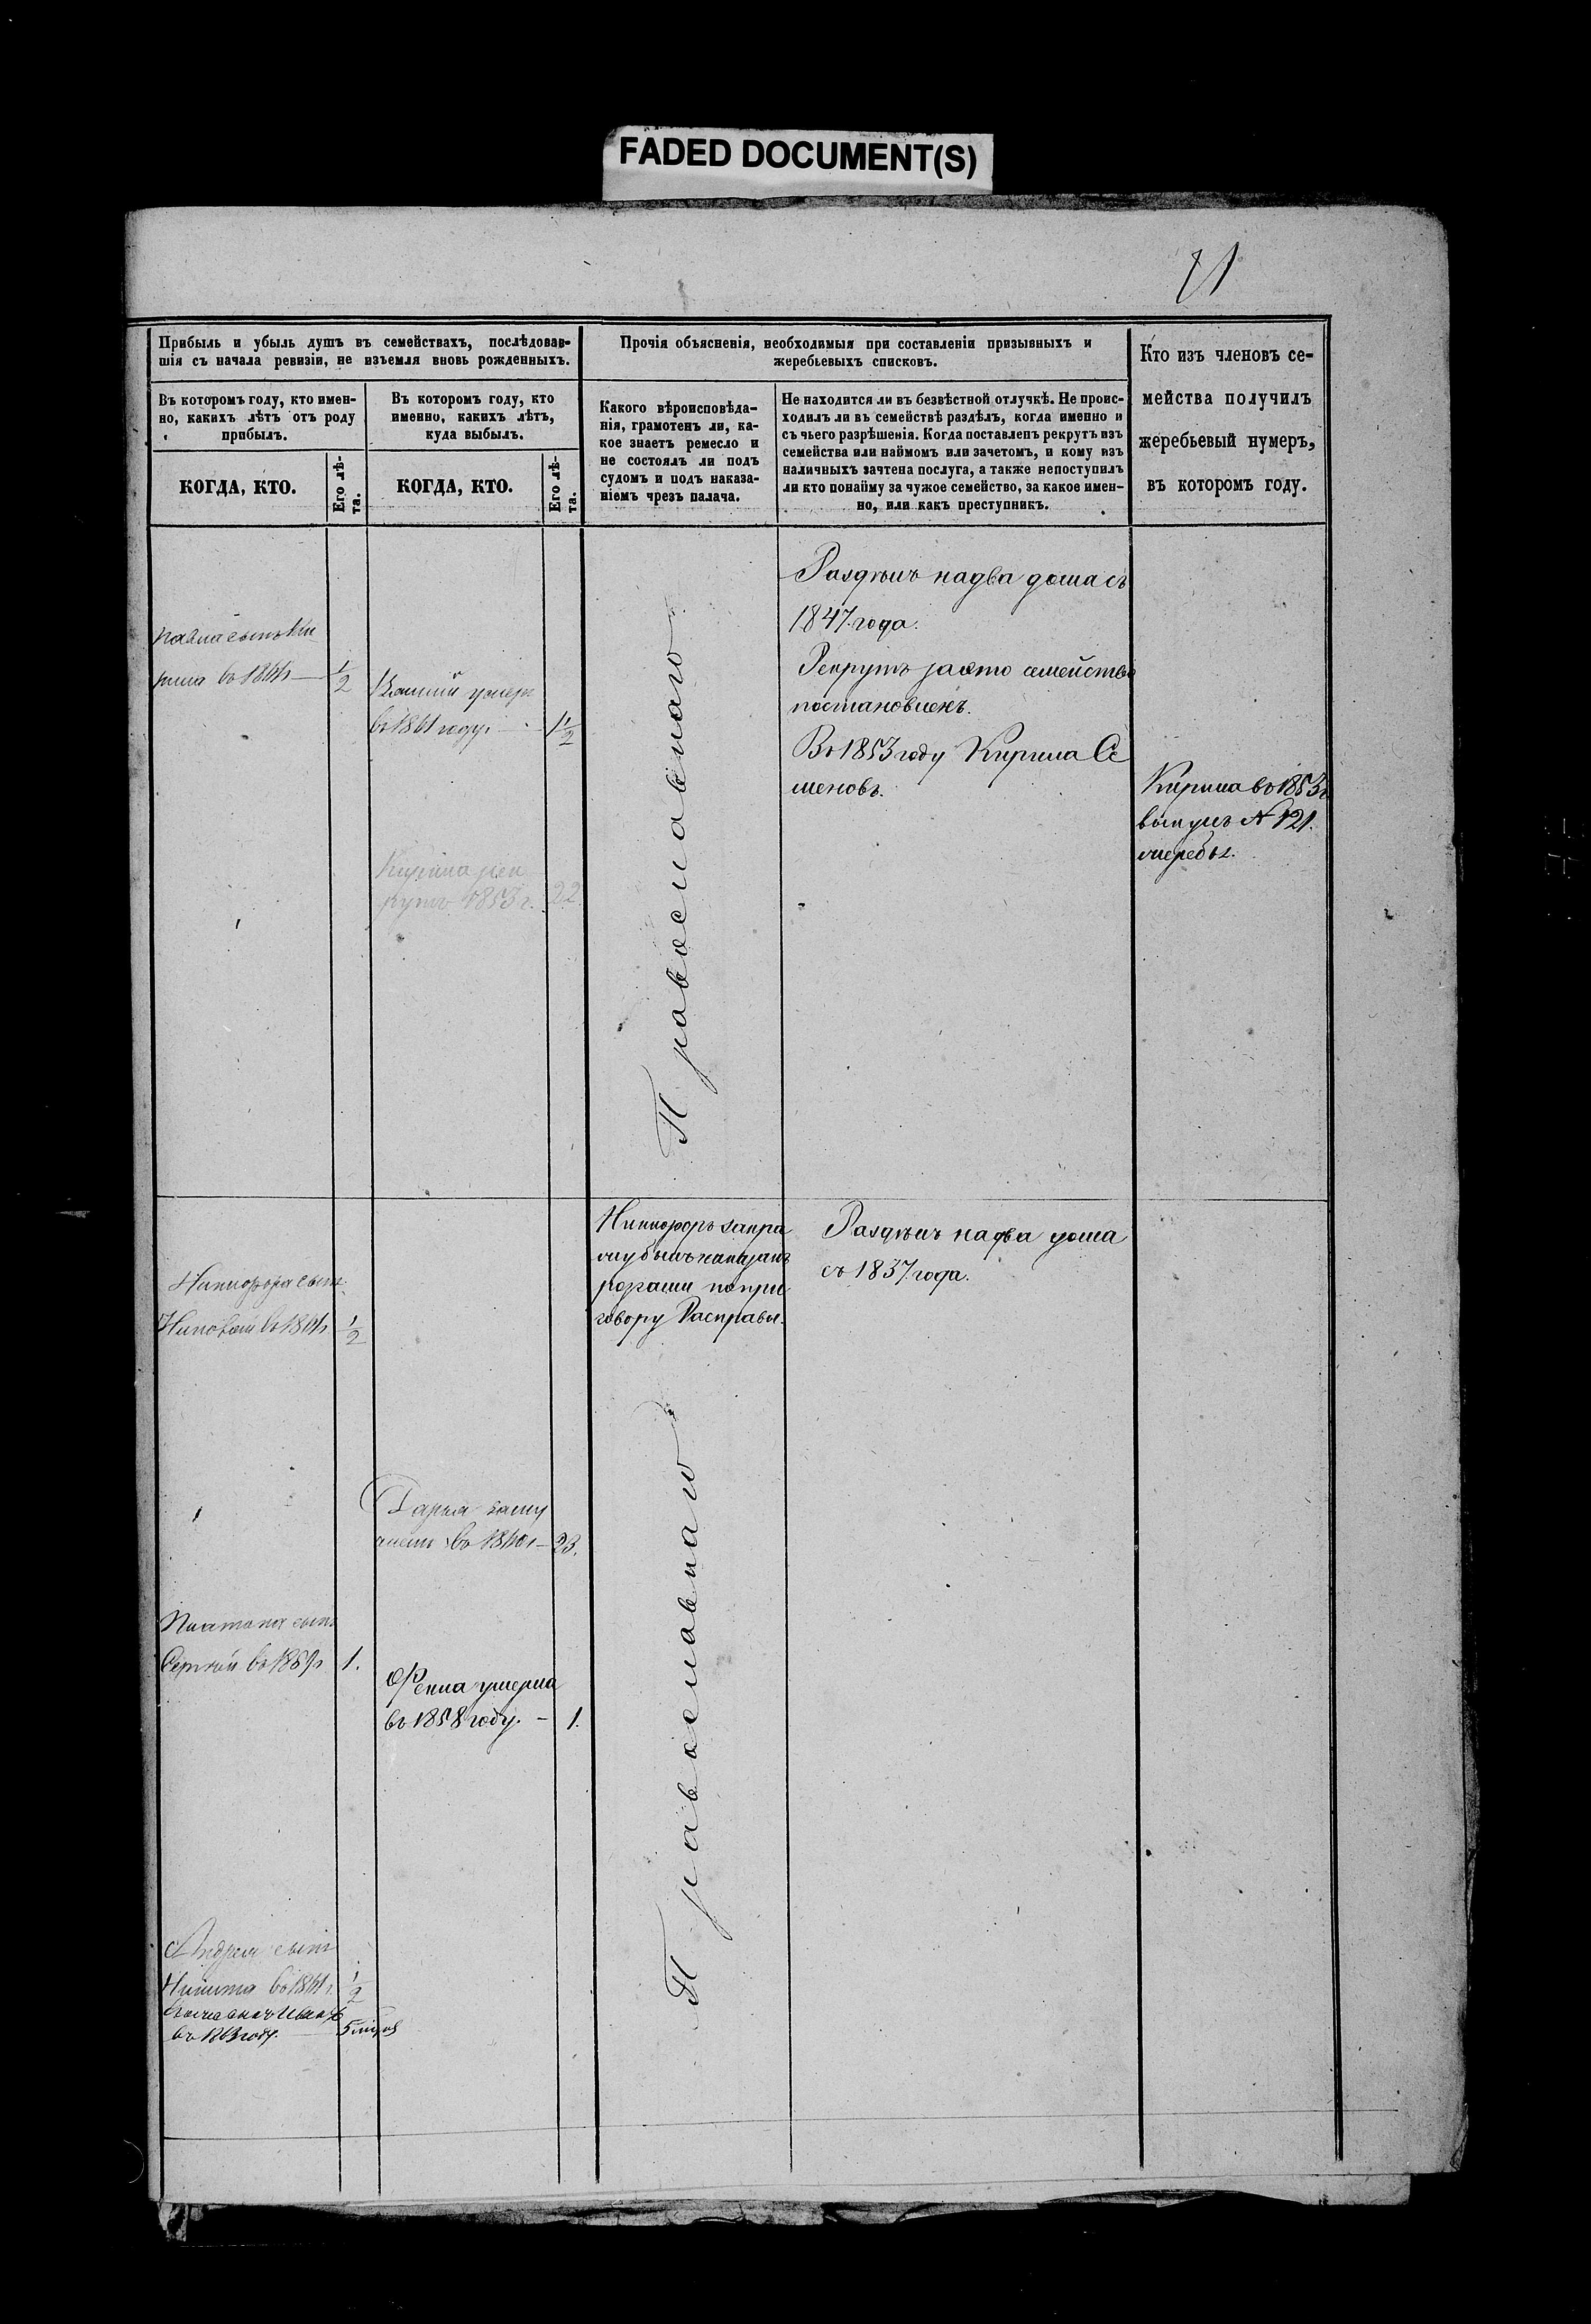 FADED DOCUMENT(S)
21
Прибыль и убыль душъ въ семействахъ, послѣдовав-
шія съ начала ревизіи, не изъемля вновь рожденныхъ.
Прочія объясненія, необходимыя при составленіи призывныхъ и
жеребьевыхъ списковъ.
Кто изъ членовъ се-
мейства получилъ
жеребьевый нумеръ,
въ которомъ году.
Въ которомъ году, кто имен-
но, какихъ лѣтъ отъ роду
прибылъ.
Въ которомъ году, кто
именно, какихъ лѣтъ,
куда выбылъ.
Какого вѣроисповѣда-
нія, грамотенъ ли, ка-
кое знаетъ ремесло и
не состоялъ ли подъ
судомъ и подъ наказа-
ніемъ чрезъ палача.
Не находится ли въ безвѣстной отлучкѣ. Не проис-
ходилъ ли въ семействѣ раздѣлъ, когда именно и
съ чьего разрѣшенія. Когда поставленъ рекрутъ изъ
семейства или наймомъ или зачетомъ, и кому изъ
наличныхъ зачтена послуга, а также непоступилъ
ли кто понайму за чужое семейство, за какое имен-
но, или какъ преступникъ.
КОГДА, КТО.
Его лѣ-
та.
КОГДА, КТО.
Его лѣ-
та.
Павла сынъ Ки
рила въ 1861 г — 1/2
умеръ
въ 1861 году. — 1 1/2
Кирила рек
рутъ 1853 г. 22
Православнаго
Раздѣлъ надва дома съ
1847 года.
Рекрутъ заэто семейство
постановленъ.
Въ 1853 году Кирила Се
меновъ.
Кирила въ 1853 г
вынулъ № 121.
жеребья.
Никифора сынъ
1/2
Никифоръ
розгами попри
говору Расправы.
Раздѣлъ надва дома
съ 1837 года.
Дарья заму
жемъ въ 1860 г — 23.
Платона сынъ
Сергѣй въ 1857 г 1.
Фекла умерла
въ 1858 году. — 1.
Православнаго
Андрея сынъ
Никита въ 1861 г. 1/2
въ 1863 году.